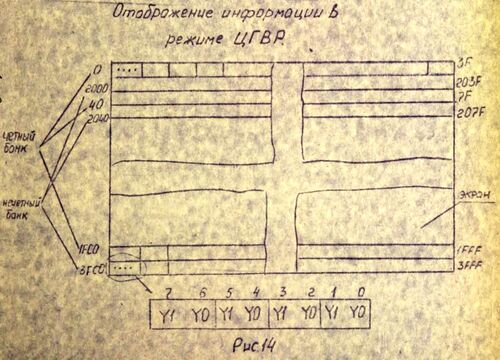 Отображение информации в
режиме ЦГВР
0 3F
2000 203F
40 7F
2040 207F
четный
банк
нечетный
банк
экран
1FC0 1FFF
3FC0 3FFF
7 6 5 4 3 2 1 0
Y1 Y0 Y1 Y0 Y1 Y0 Y1 Y0
Рис.14